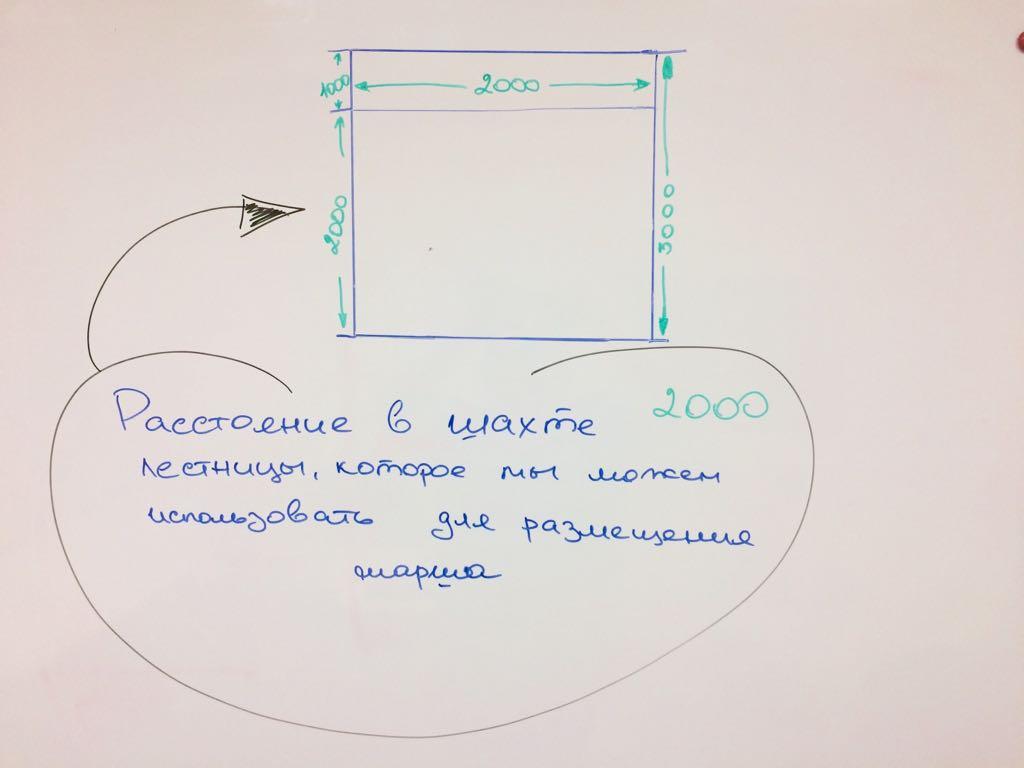 1000
2000
2000
3000
Расстояние в шахте 2000
лестницы, которое мы можем
использовать для размещения
марша